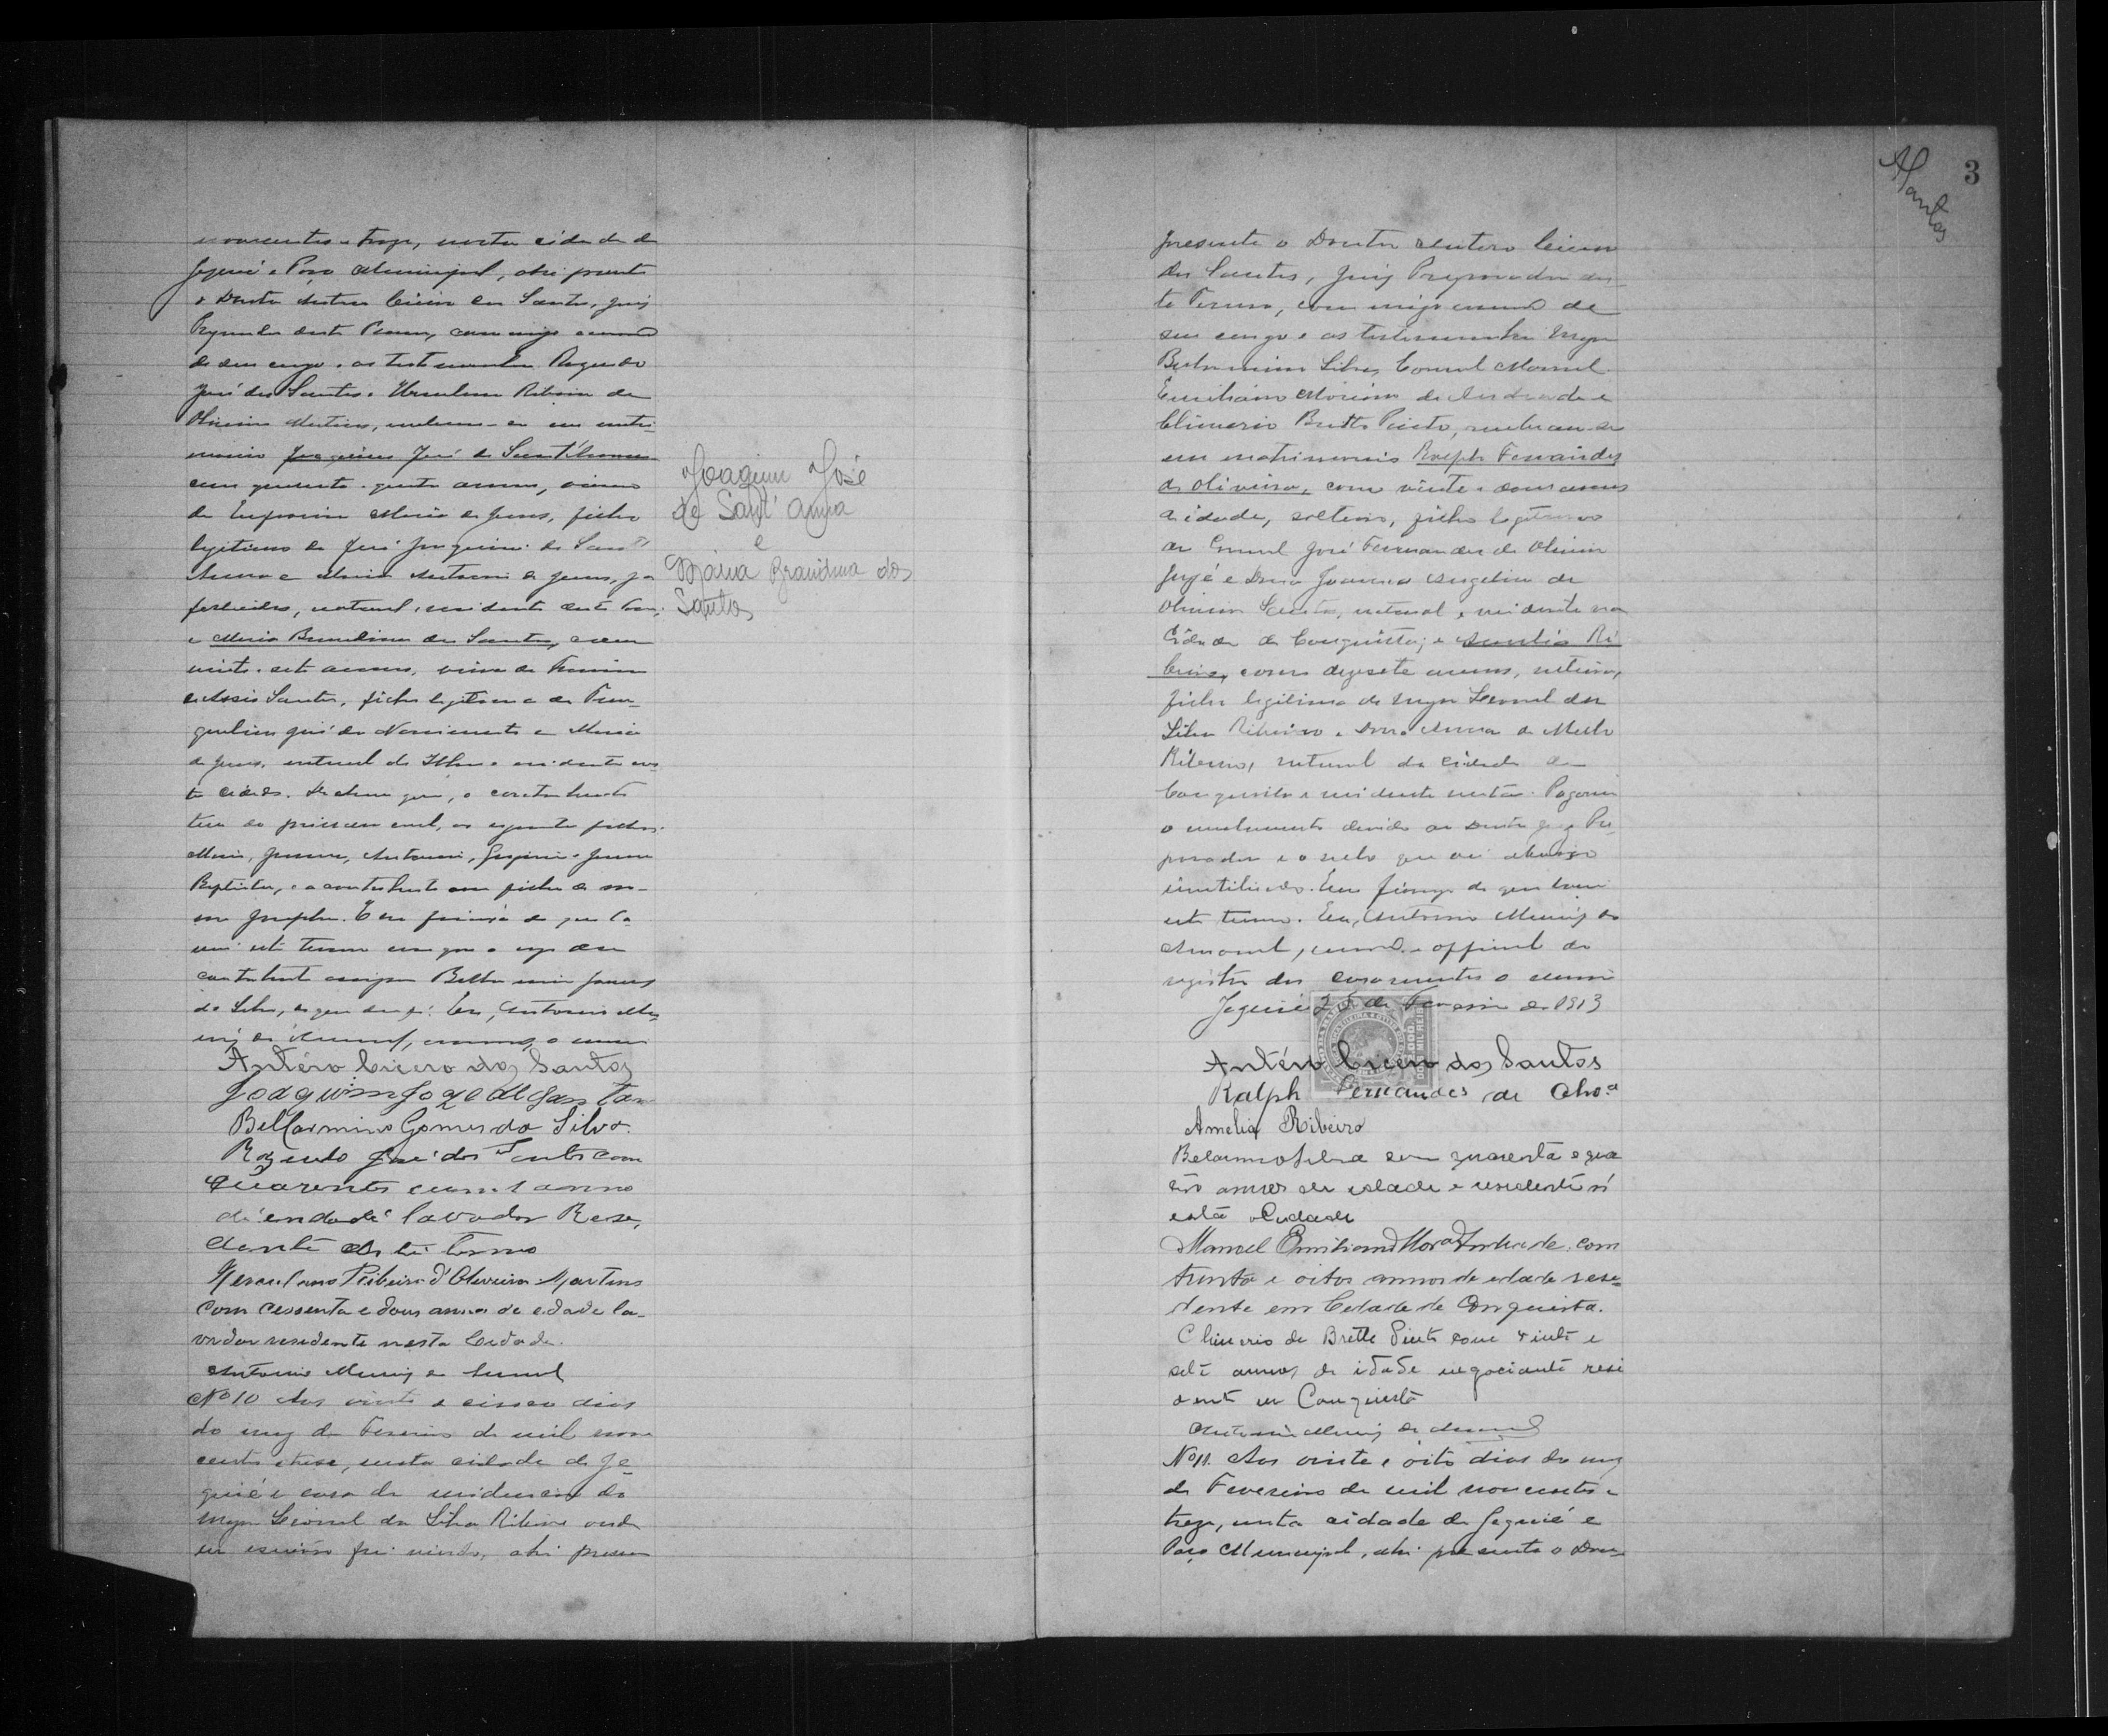 novecentos e treze, nesta cidade de
Jequié e Paço Municipal, ahi presente
o Doutor Antero Cicero dos Santos, Juiz
Preparador deste Termo, commigo escrivão
de seu cargo e as testemunhas Rozendo
José dos Santos e Herculano Ribeiro de
Oliveira Martins, receberam-se em matri-
monio Joaquim José de Sant'Anna
com quarenta e annos, viuvo
de Maria de Jesus, filho
legitimo de José Joaquim de Sant'
Anna e Maria Antonia de Jesus, ja
fallecidos, natural e residente neste Termo,
e Maria Brandina dos Santos, com
vinte e sete annos, viuva de
de Assis Santos, filha legitima de
José do Nascimento e Maria
de Jesus, natural de Ilhéos e residente nes-
ta cidade. Declarou que, o contrahente
tem do primeiro casal, os seguintes filhos:
Maria, Antonio,
Baptista, e a contrahente uma filha de no-
me Josepha. E em firmeza do que la-
vrei este termo em que a rogo da
contrahente assigna Bellarmino Gomes
da Silva, do que dou fé. Eu, Antonio Mu-
niz do Amaral, escrivão, o escrevi
Antéro Cicero dos Santos
Joaquim Joze de Santan
Bellarmino Gomes da Silva.
Rozendo José dos Santos com
quarenta annos
de endade lavador Rese,
dente deste termo
Herculano Ribeiro d'Oliveira Martins
com cessenta e dous annos de edade la-
vrador residente nesta Cidade.
Antonio Muniz do Amaral
Joaquim José
de Sant'Anna
e
Maria Brandina dos
Santos
Nº 10 Aos vinte e cinco dias
do mez de Fevereiro de mil nove
centos e treze, nesta cidade de Je-
quié e casa de residencia do
Major Leonel da Silva Ribeiro onde
eu escrivão fui vindo, ahi presen
3
Santos
presente o Doutor Antero Cicero
dos Santos, Juiz Preparador des-
te Termo, commigo escrivão de
seu cargo e as testemunhas Major
Belarmino Silva, Coronel Manoel
Emiliano Moreira de Andrade e
Climerio Britto Pinto, receberam-se
em matrimonio Ralph Fernandes
de Oliveira, com vinte e dous annos
de idade, solteiro, filho legitimo
do Coronel José Fernandes de Oliveira
e Dona Joanna Angelica de
Oliveira Santos, natural e residente na
Cidade de Conquista; e Amelia Ri
beiro, com dezesete annos, solteira,
filha legitima do Major Leonel da
Silva Ribeiro e Dona Anna de Mello
Ribeiro, natural da cidade de
Conquista e residente nesta. Pagaram
o emolumento devido ao Doutor Juiz Pre-
parador e o sello que vai abaixo
inutilizado. Em firmeza do que lavrei
este termo. Eu, Antonio Muniz do
Amaral, escrivão e official do
registro dos casamentos o escrevi
Jequié 25 de Fevereiro de 1913
2.000
DOIS MIL REIS
Antéro Cicero dos Santos
Ralph Fernandes de Olivª
Amelia Ribeiro
Belarmino Silva com quarenta e qua
tro annos de edade e residente n'
esta Cidade
Manoel Emiliano Morª Andrade com
trinta e oitos annos de edade rese-
dente em Cedade de Conquista.
Climerio de Britto Pinto com vinte e
sete annos de idade negociante resi
dente em Conquista
Antonio Muniz do Amaral
Nº 11. Aos vinte e oito dias do mez
de Fevereiro de mil novecentos e
treze, nesta cidade de Jequié e
Paço Municipal, ahi presente o Dou-